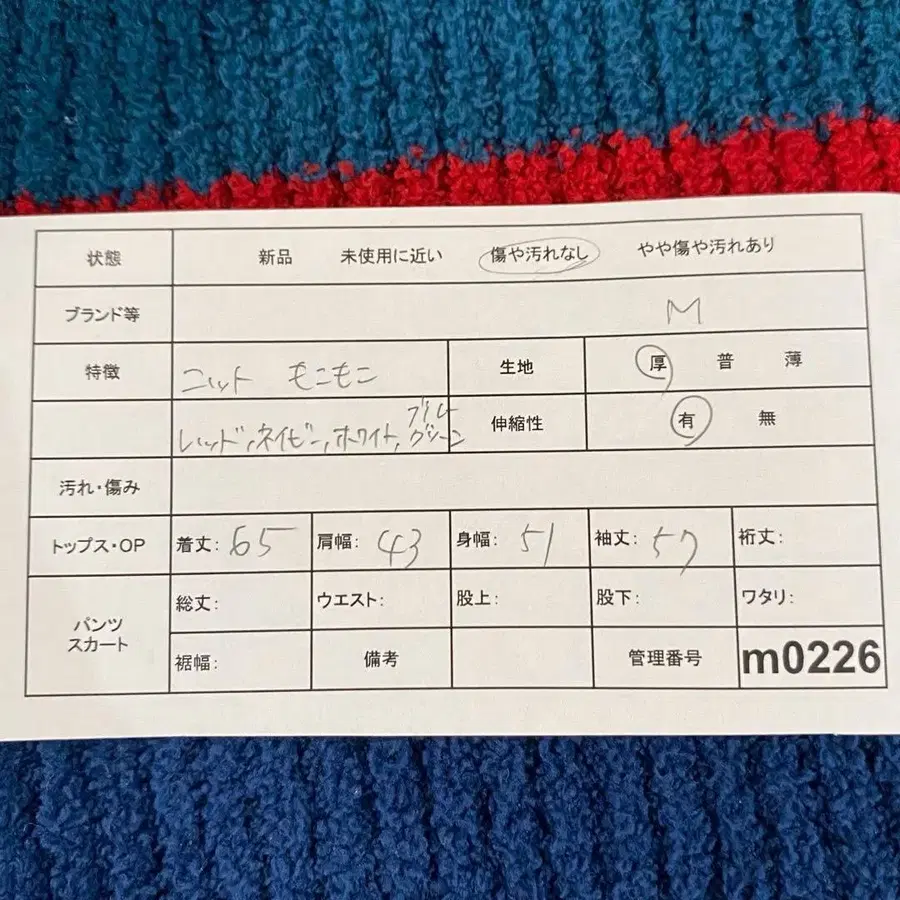 状態 新品 未使用に近い 傷や汚れなし やや傷や汚れあり
ブランド等 M
特徴 ニット もこもこ 生地 厚 普 薄
ブルー
レッド,ネイビー,ホワイト,グリーン 伸縮性 有 無
汚れ・傷み
トップス・OP 着丈: 65 肩幅: 43 身幅: 51 袖丈: 57 裄丈:
パンツ
スカート
総丈: ウエスト: 股上: 股下: ワタリ:
裾幅: 備考 管理番号 m0226